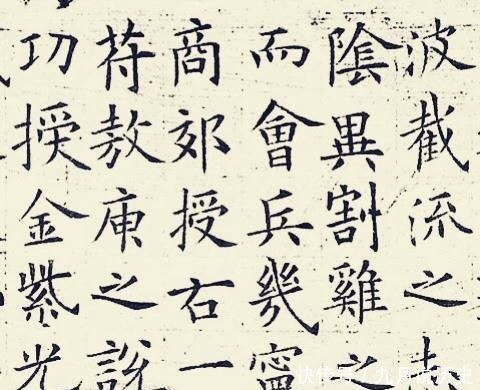 波截流之
陰異割雞之
而會兵幾寧
商郊授右一
苻敖庾之說
功授金紫光
快传号